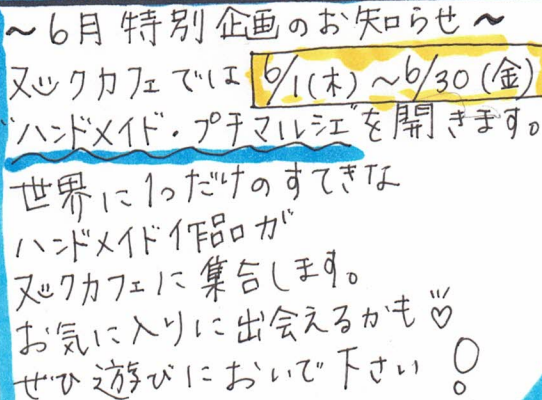 ～6月特別企画のお知らせ～
ヌックカフェでは 6/1(木)～6/30(金)
"ハンドメイド・プチマルシェ"を開きます。
世界に1つだけのすてきな
ハンドメイド作品が
ヌックカフェに集合します。
お気に入りに出会えるかも♡
ぜひ遊びにおいで下さい!